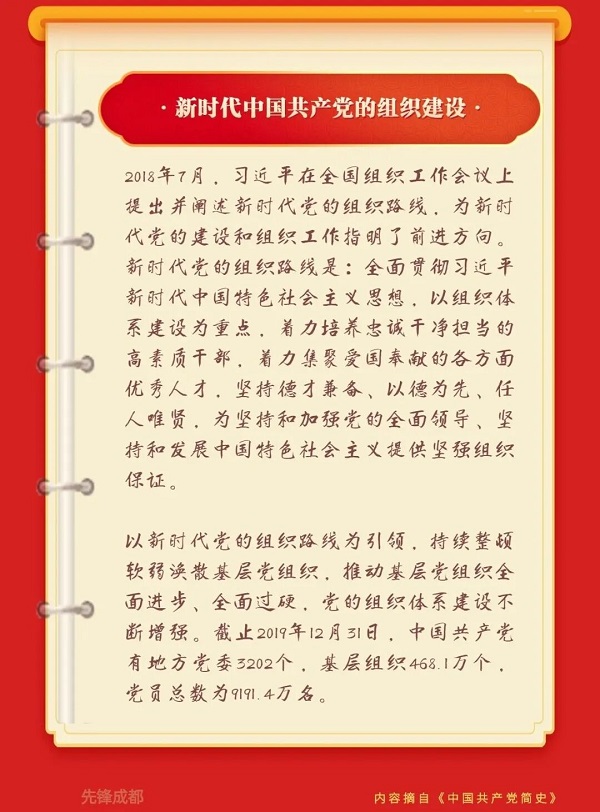 ·新时代中国共产党的组织建设·
2018年7月，习近平在全国组织工作会议上
提出并阐述新时代党的组织路线，为新时
代党的建设和组织工作指明了前进方向。
新时代党的组织路线是：全面贯彻习近平
新时代中国特色社会主义思想，以组织体
系建设为重点，着力培养忠诚干净担当的
高素质干部，着力集聚爱国奉献的各方面
优秀人才，坚持德才兼备、以德为先、任
人唯贤，为坚持和加强党的全面领导、坚
持和发展中国特色社会主义提供坚强组织
保证。
以新时代党的组织路线为引领，持续整顿
软弱涣散基层党组织，推动基层党组织全
面进步、全面过硬，党的组织体系建设不
断增强。截止2019年12月31日，中国共产党
有地方党委3202个，基层组织468.1万个，
党员总数为9191.4万名。
先锋成都
内容摘自《中国共产党简史》